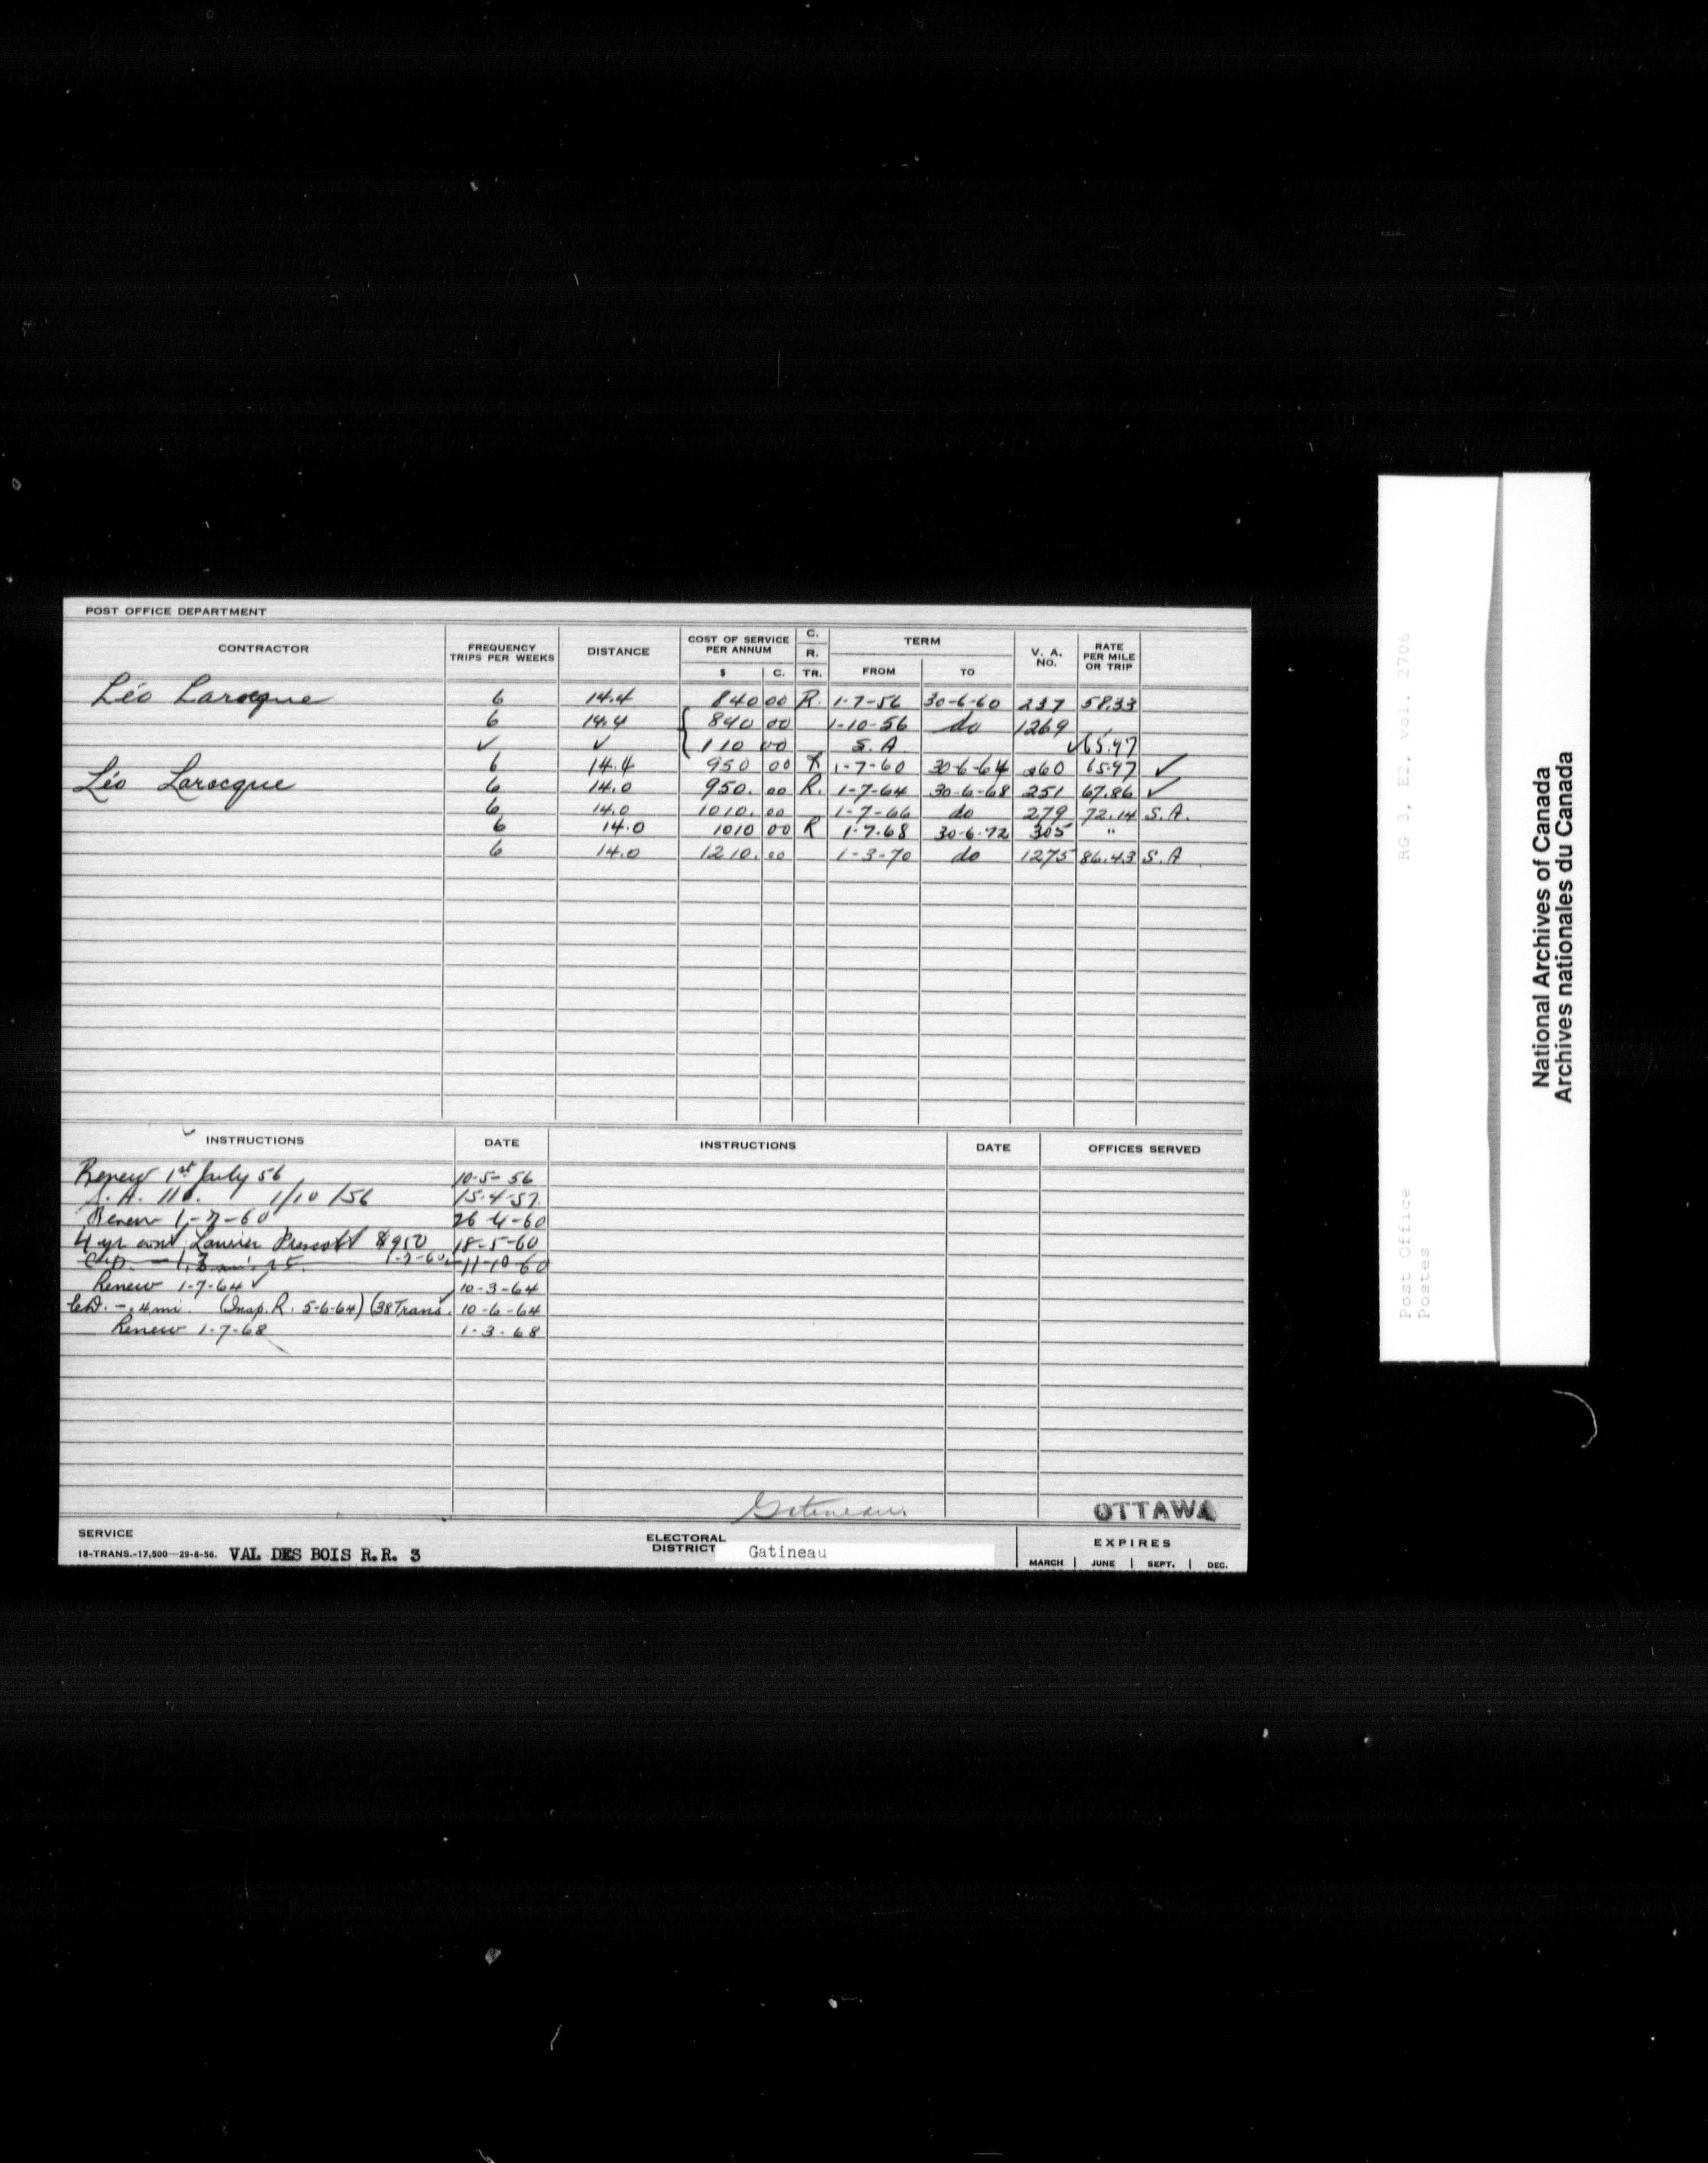 POST OFFICE DEPARTMENT
CONTRACTOR FREQUENCY TRIPS PER WEEKS DISTANCE COST OF SERVICE PER ANNUM $ C. C. R. TR. TERM FROM TO V. A. NO. RATE PER MILE OR TRIP
Léo Larocque 6 14.4 840 00 R. 1-7-56 30-6-60 237 58.33
6 14.4 840 00 1-10-56 do 1269
✓ ✓ 110 00 S.A ✓65.97
6 14.4 950 00 R 1-7-60 30-6-64 260 65.97 ✓
Léo Larocque 6 14.0 950. 00 R. 1-7-64 30-6-68 251 67.86 ✓
6 14.0 1010. 00 1-7-66 do 279 72.14 S.A.
6 14.0 1010 00 R 1-7-68 30-6-72 305 "
6 14.0 1210. 00 1-3-70 do 1275 86.43 S.A
INSTRUCTIONS DATE INSTRUCTIONS DATE OFFICES SERVED
Renew 1st July 56 10-5-56
S.A. 110. 1/10/56 15-4-57.
Renew 1-7-60 26-4-60
4 yr cont. $950 18-5-60
1-7-60 11-10-60
Renew 1-7-64 ✓ 10-3-64
- .4 mi. (Insp. R. 5-6-64) (38 Trans. 10-6-64
Renew 1-7-68 1-3-68
Gatineau
OTTAWA
SERVICE
18-TRANS.-17,500—29-8-56. VAL DES BOIS R.R. 3
ELECTORAL DISTRICT Gatineau
EXPIRES
MARCH | JUNE | SEPT. | DEC.
RG 3, E2, vol. 2706
Post Office
Postes
National Archives of Canada
Archives nationales du Canada